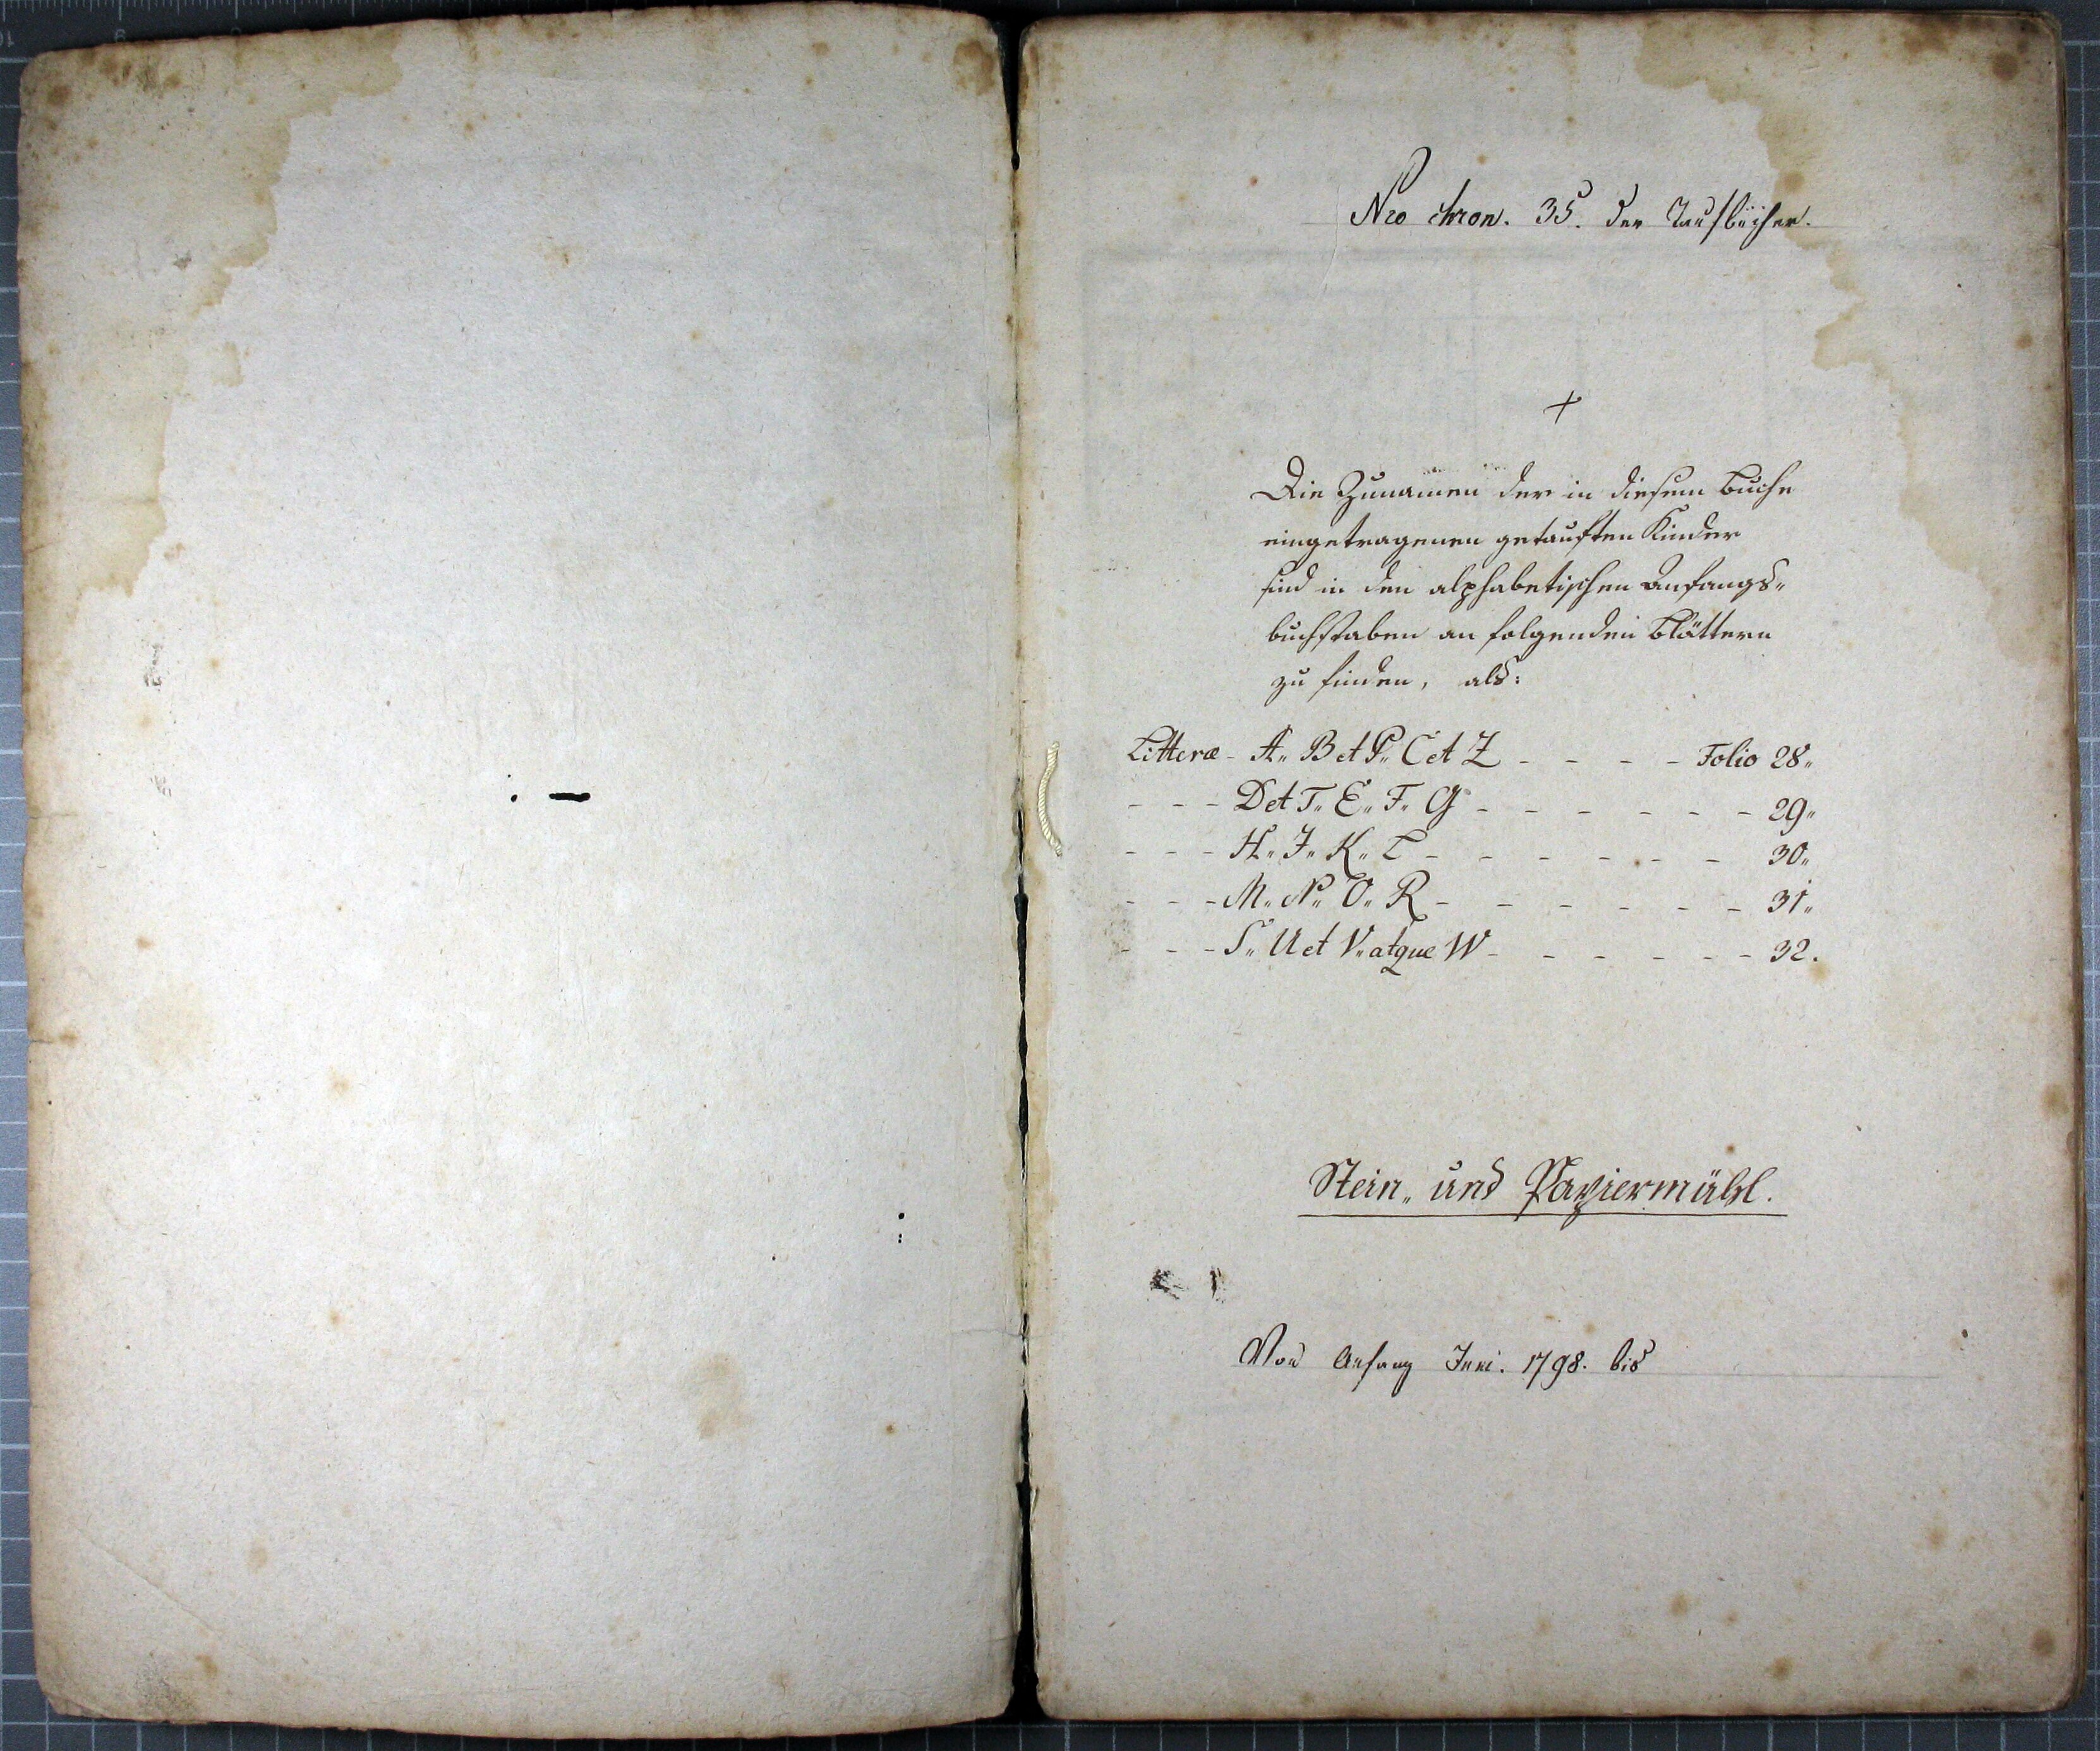 Nro chron. 35. der Taufbücher.
+
Die Zunamen der in diesem Buche
eingetragenen getauften Kinder
sind in den alphabetischen Anfangs„
buchstaben an folgenden Blättern
zu finden, als:
Litteræ - A„ B et P„ C et Z - - - - Folio 28„
- - - D et T„ E„ F„ G - - - - - - - 29„
- - - H„ J„ K„ L - - - - - - - 30„
- - - M„ N„ O„ R - - - - - - - 31„
- - - S„ U et V„ atque W - - - - - - 32.
Stein„ und Papiermühl.
Von Anfang Juni. 1798. bis